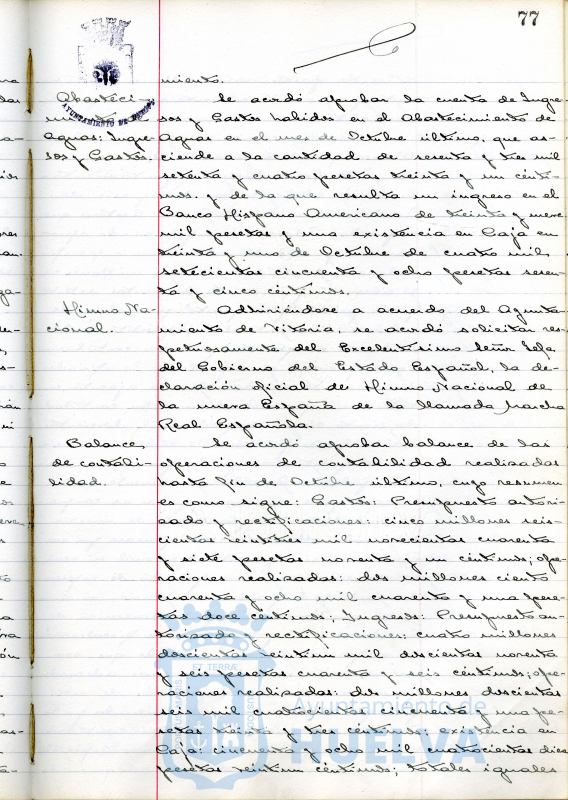 77
AYUNTAMIENTO DE HUELVA
miento.
Abasteci-
miento
Aguas: Ingre-
sos y Gastos.
Se acordó aprobar la cuenta de Ingre-
sos y Gastos habidos en el Abastecimiento de
Aguas en el mes de Octubre último, que as-
ciende a la cantidad de sesenta y tres mil
setenta y cuatro pesetas treinta y un cénti-
mos, y de la que resulta un ingreso en el
Banco Hispano Americano de treinta y nueve
mil pesetas y una existencia en Caja en
treinta y uno de Octubre de cuatro mil
setecientas cincuenta y ocho pesetas sesen-
ta y cinco céntimos.
Himno Na-
cional.
Adhiriéndose a acuerdo del Ayunta-
miento de Vitoria, se acordó solicitar res-
petuosamente del Excelentísimo Señor Jefe
del Gobierno del Estado Español, la de-
claración oficial de Himno Nacional de
la nueva España de la llamada Marcha
Real Española.
Balance
de contabi-
lidad.
Se acordó aprobar balance de las
operaciones de contabilidad realizadas
hasta fin de Octubre último, cuyo resumen
es como sigue: Gastos: Presupuesto autori-
zado y rectificaciones: cinco millones seis-
cientas veintitres mil novecientas cuarenta
y siete pesetas noventa y un céntimos; ope-
raciones realizadas: dos millones ciento
cuarenta y ocho mil cuarenta y una pese-
tas doce céntimos; Ingresos: Presupuesto au-
torizado y rectificaciones: cuatro millones
doscientas veintiun mil doscientas noventa
y seis pesetas cuarenta y seis céntimos; ope-
raciones realizadas: dos millones doscientas
seis mil cuatrocientas cincuenta y una pe-
setas treinta y tres céntimos; existencia en
Caja: cincuenta y ocho mil cuatrocientas diez
pesetas veintiun céntimos; totales iguales
Ayuntamiento de
HUELVA